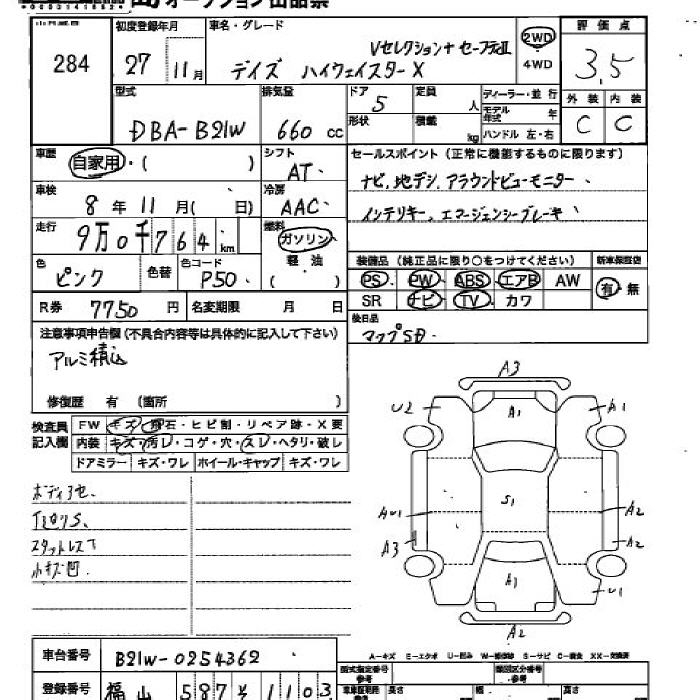 オークション出品票
284
初度登録年月
27 11月
車名・グレード
Vセレクション+セーフティII
デイズ ハイウェイスターX
2WD
4WD
評価点
3.5
型式
DBA-B21W
排気量
660 cc
ドア
5
形状
定員
人
積載
kg
ディーラー・並行
モデル年式
年
ハンドル 左・右
外装
内装
C
C
車歴
自家用・( )
シフト
AT
セールスポイント(正常に機能するものに限ります)
ナビ、地デジ、アラウンドビューモニター、
インテリキー、エマージェンシーブレーキ、
車検
8年11月( 日)
冷房
AAC
走行
9万0千764km
燃料
ガソリン
軽油
( )
色
ピンク
色替
色コード
P50
装備品(純正品に限り○をつけてください)
新車保証書
PS PW ABS エアB AW
SR ナビ TV カワ
有・無
R券 7750円
名変期限 月 日
後日品
マップSD.
注意事項申告欄(不具合内容等は具体的に記入して下さい)
アルミ積込
修復歴 有 (箇所 )
検査員記入欄
FW キズ・飛石・ヒビ割・リペア跡・X要
内装 キズ・汚レ・コゲ・穴・スレ・ヘタリ・破レ
ドアミラー キズ・ワレ ホイール・キャップ キズ・ワレ
スタットレス
小キズ凹.
A3
U2
A1
A1
S1
A2
A3
A2
A1
U1
A2
A-キズ E-エクボ U-凹み W-補修跡 S-サビ C-腐食 XX-交換済
車台番号
B21W-0254362
型式指定番号
参考
類別区分番号
参考
登録番号
福山 587 そ 1103
長さ
幅
高さ